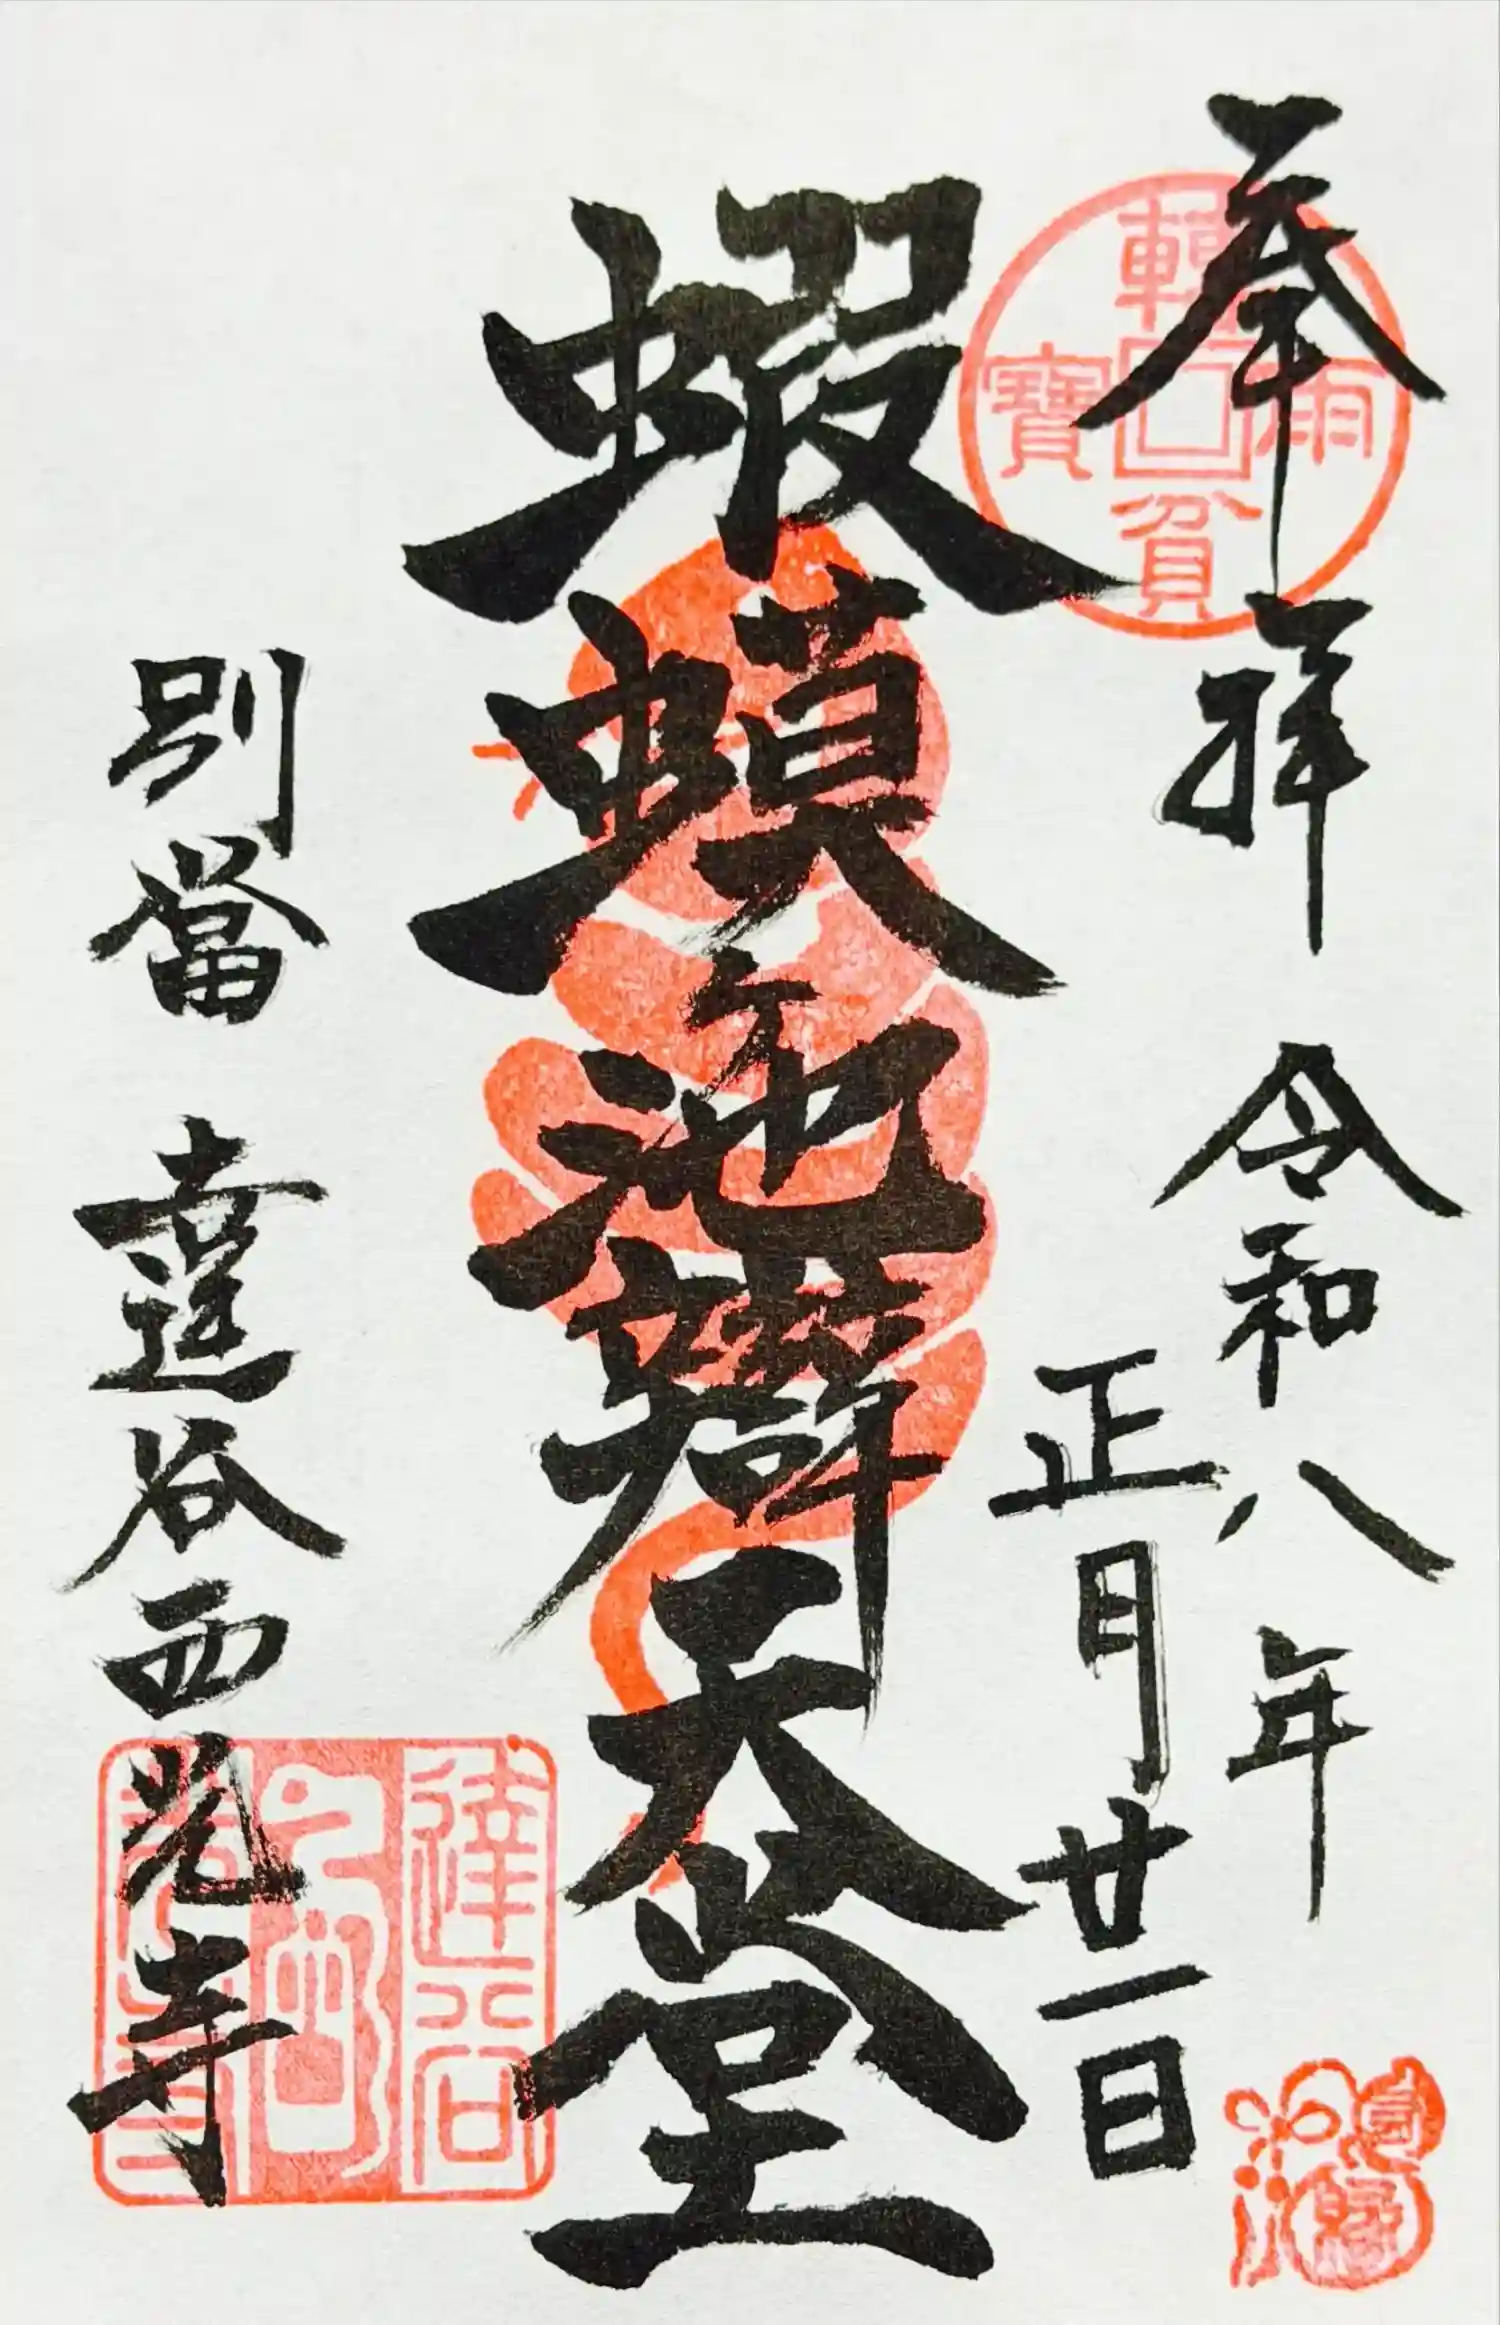 奉拝 令和八年
正月廿一日
蝦蟆ヶ池辯天堂
別當 達谷西光寺
達谷